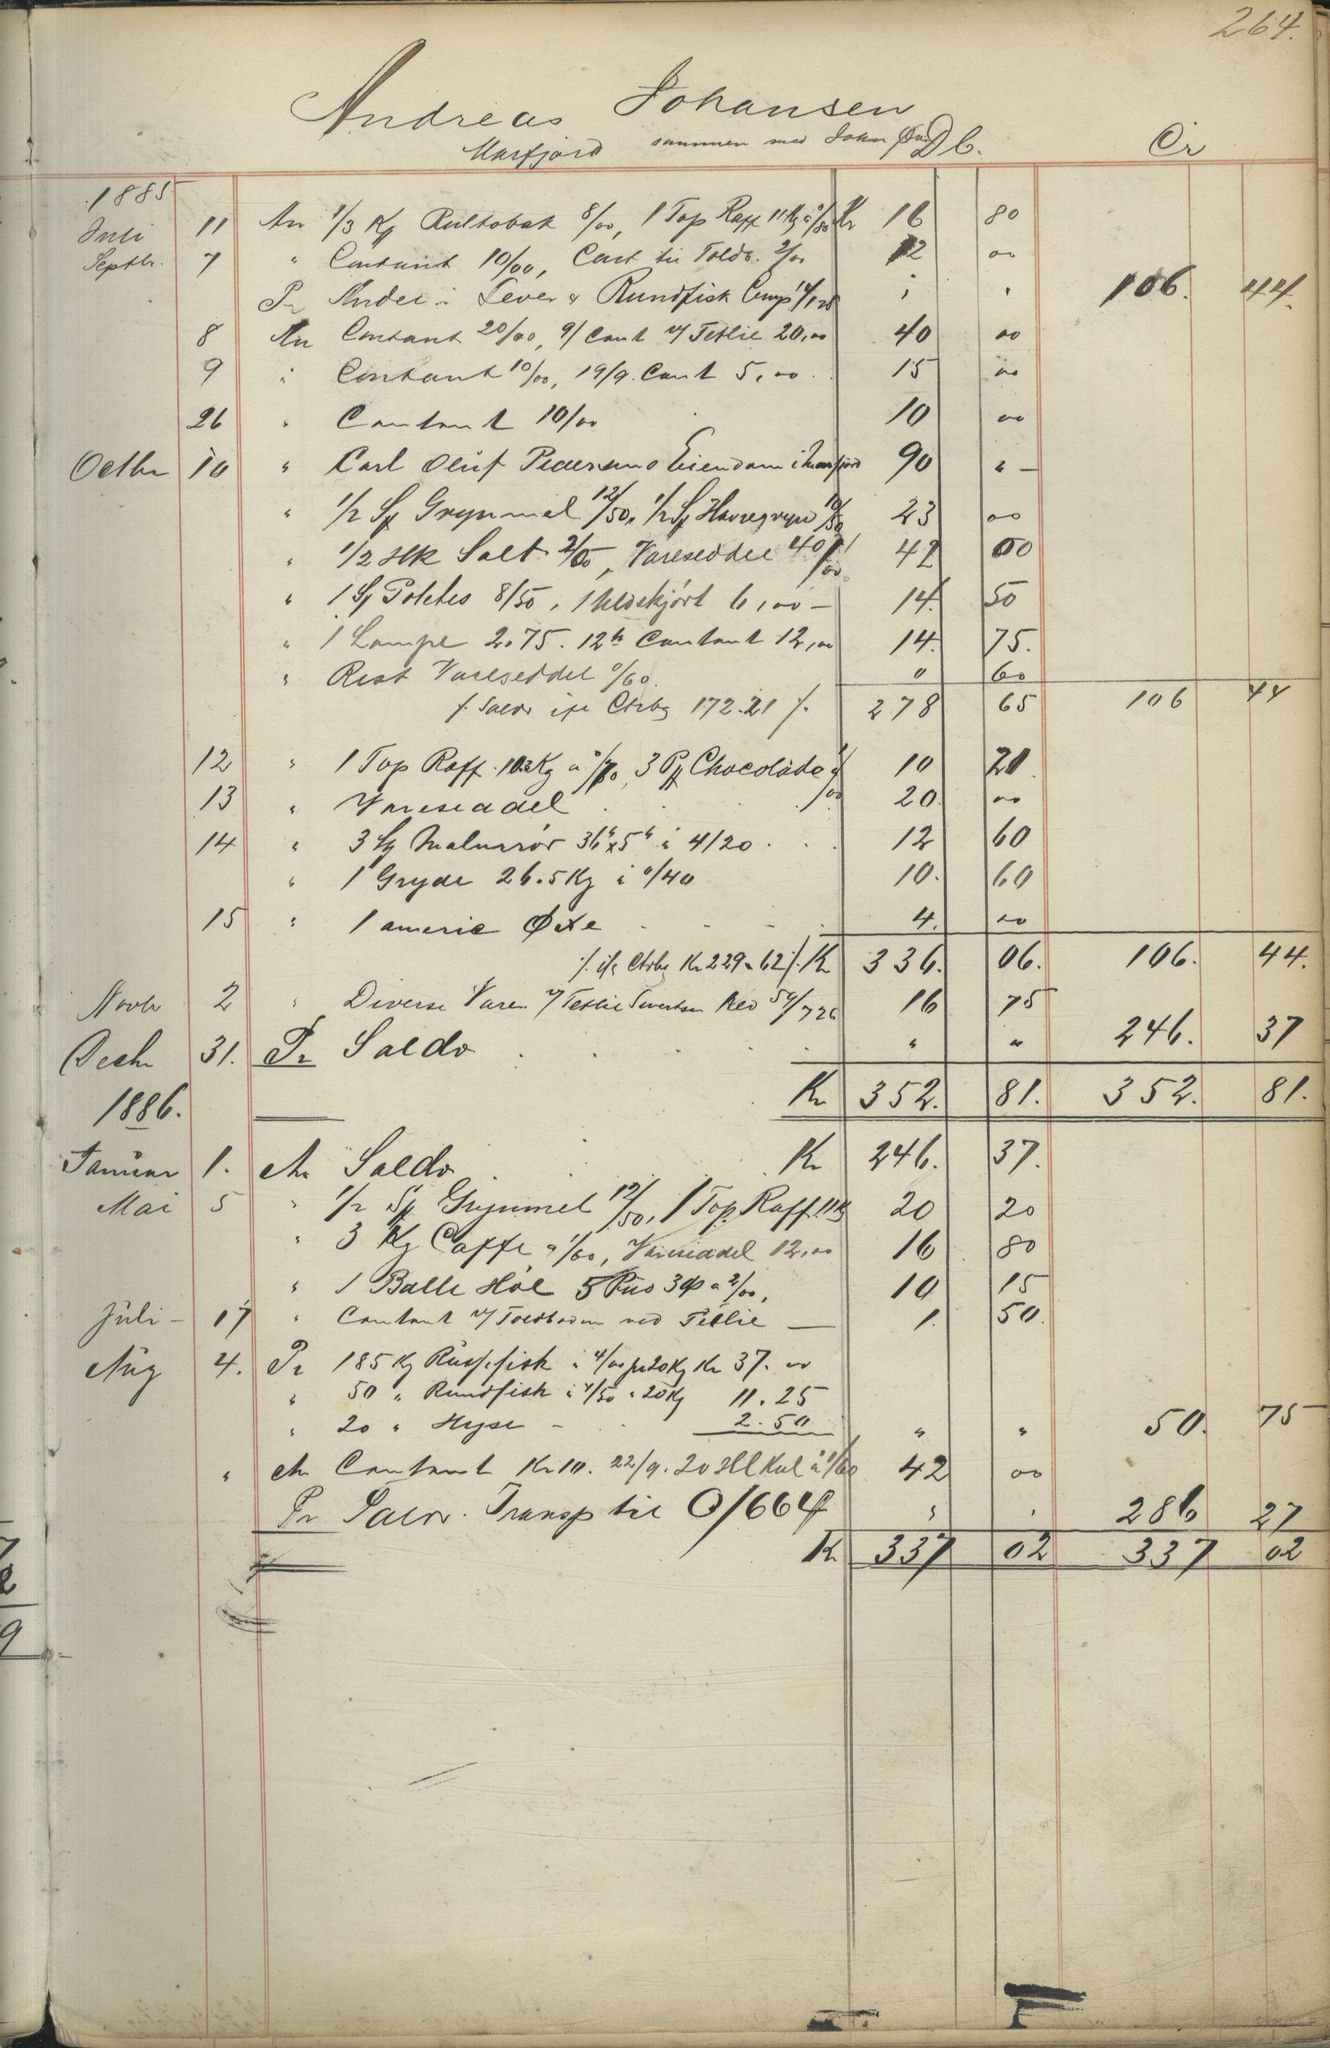 264.
Andreas Johansen
Marfjord sammen med John Db. Cr
1885
Juli 11 An 1/3 Kg Rultobak 8/00, 1 Top Raff 11 Kg a 0/80 Kr 16 80
Septbr. 7 " Contant 10/00, Cont til Toldb. 2/00 12 00
Pr Andel i Lever & Rundfisk " " 106. 44.
8 An Contant 20/00, 9/ Cont v/ Tetlie 20,00 40 00
9 " Contant 10/00, 19/9. Cont 5,00 15 00
26 " Contant 10/00 10 00
Octbr 10 " Carl Oluf Pedersens Eiendom i Marfjord 90 " -
" 1/2 Sk Grynmel 12/50, 1/2 Sk Havregryn 10/50 23 00
" 1/2 Hk Salt 2/00, Vareseddel 40/00 42 00
" 1 Sk Potetes 8/50, 1 6,00 - 14. 50
" 1 Lampe 2.75. 12te Contant 12,00 14. 75.
" Rest Vareseddel 0/60. 0 60
/. Saldo ifl Ctrbg 172.21 /. 278 65 106 44
12 " 1 Top Raff. 10.2 Kg a 0/70, 3 Pk Chocolade 10 20
13 " Vareseddel 20. 00
14 " 3 36" x 5" a 4/20 12 60
" 1 Gryde 26.5 Kg a 0/40 10. 60
15 " 1 americ Øxe 4. 00
/. ifl Ctrbg Kr 229.62 /. Kr 336. 06. 106. 44.
Novbr 2 " Diverse Varer v/ Tetlie Sivertsen 16 75
Decbr 31. Pr Saldo " " 246. 37
Kr 352. 81. 352. 81.
1886.
Januar 1. An Saldo Kr 246. 37.
Mai 5 " 1/2 Sk Grynmel 12/50, 1 Top Raff. 11 Kg 20 20
" 3 Kg Caffe a 1/60, Vareseddel 12,00 16 80
" 1 Balle Høe 5 a 2/00, 10 15
Juli - 17 " Contant v/ Toldboden ved Tetlie - 1. 50.
Aug 4. Pr 185 Kg Russefisk a 4/00 pr 20 Kg Kr 37. 00
" 50 " Rundfisk a 4/50 " 20 Kg 11.25
" 20 " Hyse - 2.50 " " 50. 75
" An Contant Kr 10. 22/9. 20 Hl Kul a 1/60 42 00
Pr Saldo. Transp til O/664 " " 286 27
Kr 337 02 337 02